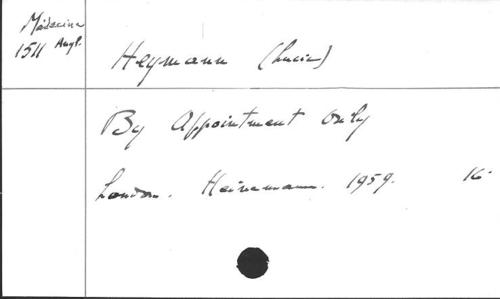 Médecine
1511 Angl.
Heymann (Lucie)
By Appointment Only
London. Heinemann. 1959. 16